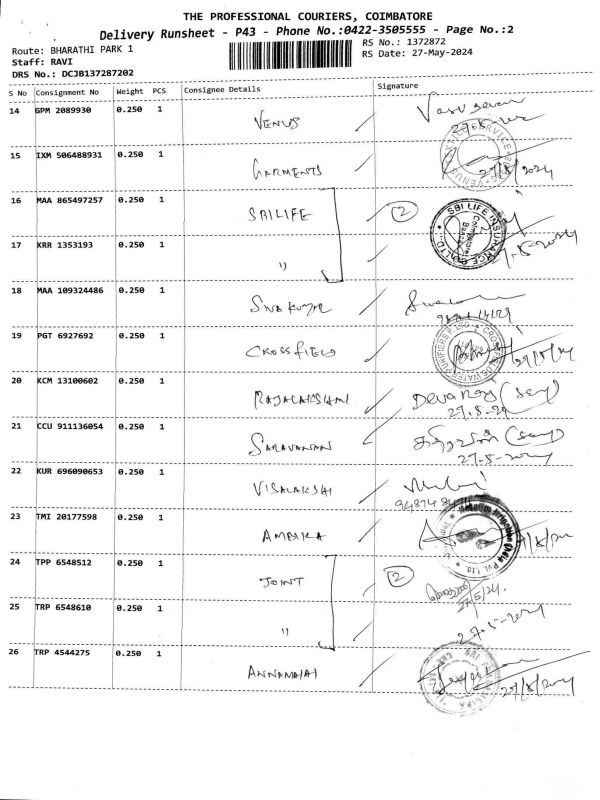 THE PROFESSIONAL COURIERS, COIMBATORE
Delivery Runsheet - P43 - Phone No.:0422-3505555 - Page No.:2
Route: BHARATHI PARK 1
Staff: RAVI
DRS No.: DCJB137287202
RS No.: 1372872
RS Date: 27-May-2024
S No Consignment No Weight PCS Consignee Details Signature
14 GPM 2089930 0.250 1 VENUS
15 IXM 506488931 0.250 1 GARMENTS
16 MAA 865497257 0.250 1 SBILIFE 2
SBI LIFE INSURANCE CO LTD
17 KRR 1353193 0.250 1 "
27-5-2024
18 MAA 109324486 0.250 1 SIVAKUMAR
19 PGT 6927692 0.250 1 CROSSFIELD
20 KCM 13100602 0.250 1 RAJALAKSHMI Devaraj (Sey)
27.5.24
21 CCU 911136054 0.250 1 SARAVANAN
27-5-2024
22 KUR 696090653 0.250 1 VISALAKSHI
23 TMI 20177598 0.250 1 AMBIKA
24 TPP 6548512 0.250 1 JOINT 2
27/5/24.
25 TRP 6548610 0.250 1 "
27-5-2024
26 TRP 4544275 0.250 1 ANNAMALAI